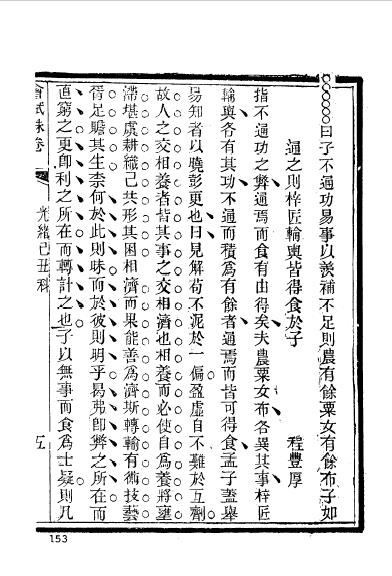 曰子不通功易事以羨補不足則農有餘粟女有餘布子如
通之則梓匠輪輿皆得食於子
程豐厚
指不通功之弊通焉而食有由得矣夫農粟女布各異其事梓匠
輪輿各有其功不通而積為有餘者通焉而皆可得食孟子蓋舉
易知者以曉彭更也日見解苟不泥於一偏盈虛自不難於互劑
故人之交相養者皆其事之交相濟也相養而必使自為養將壅
滯堪虞耕織已共形其困相濟而果能善為濟斯轉輸有術技藝
胥足贍其生柰何於此則昧而於彼則明乎曷弗即弊之所在而
直窮之更卽利之所在而轉計之也子以無事而食為士疑則凡
會試硃卷
光緒己丑科
五
153